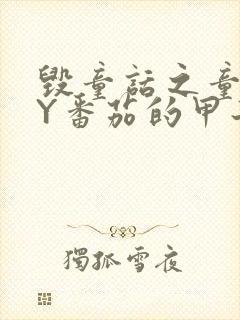 毁童话之童
Y番茄的甲
獨孤雪夜